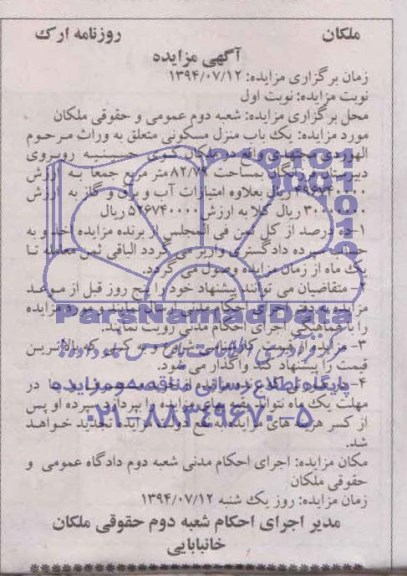 ملکان روزنامه ارک
آگهی مزایده
زمان برگزاری مزایده: ۱۳۹۴/۰۷/۱۲
نوبت مزایده: نوبت اول
محل برگزاری مزایده: شعبه دوم عمومی و حقوقی ملکان
مورد مزایده: یک باب منزل مسکونی متعلق به وراث مرحوم
واقع در ملکان کوی حسینیه روبروی
بمساحت ۸۲/۷۹ متر مربع جمعا به ارزش
۴۹۶۷۴۰۰۰۰ ریال بعلاوه امتیازات آب و برق و گاز به ارزش
ریال کلا به ارزش ۵۲۶۷۴۰۰۰۰ ریال
۱- ده درصد از کل ثمن فی المجلس از برنده مزایده اخذ و به
سپرده دادگستری واریز می گردد الباقی ثمن معامله تا
یک ماه از زمان مزایده وصول می گردد.
۲- متقاضیان می توانند پیشنهاد خود را پنج روز قبل از موعد
مزایده به دفتر اجرای احکام مدنی و مورد مزایده
را با هماهنگی اجرای احکام مدنی رویت نمایند.
۳- مزایده از قیمت کارشناسی شروع و به کسی که بالاترین
قیمت را پیشنهاد کند واگذار می شود.
۴- در
مهلت یک ماه نتواند بقیه بهای مزایده را بپردازد سپرده او پس
از کسر هزینه های مزایده به نفع دولت مزایده تجدید خواهد
شد.
مکان مزایده: اجرای احکام مدنی شعبه دوم دادگاه عمومی و
حقوقی ملکان
زمان مزایده: روز یک شنبه ۱۳۹۴/۰۷/۱۲
مدیر اجرای احکام شعبه دوم حقوقی ملکان
خانبابایی
ParsNamadData
پایگاه اطلاع رسانی مناقصه و مزایده
۰۲۱-۸۸۳۴۹۶۷۰-۵